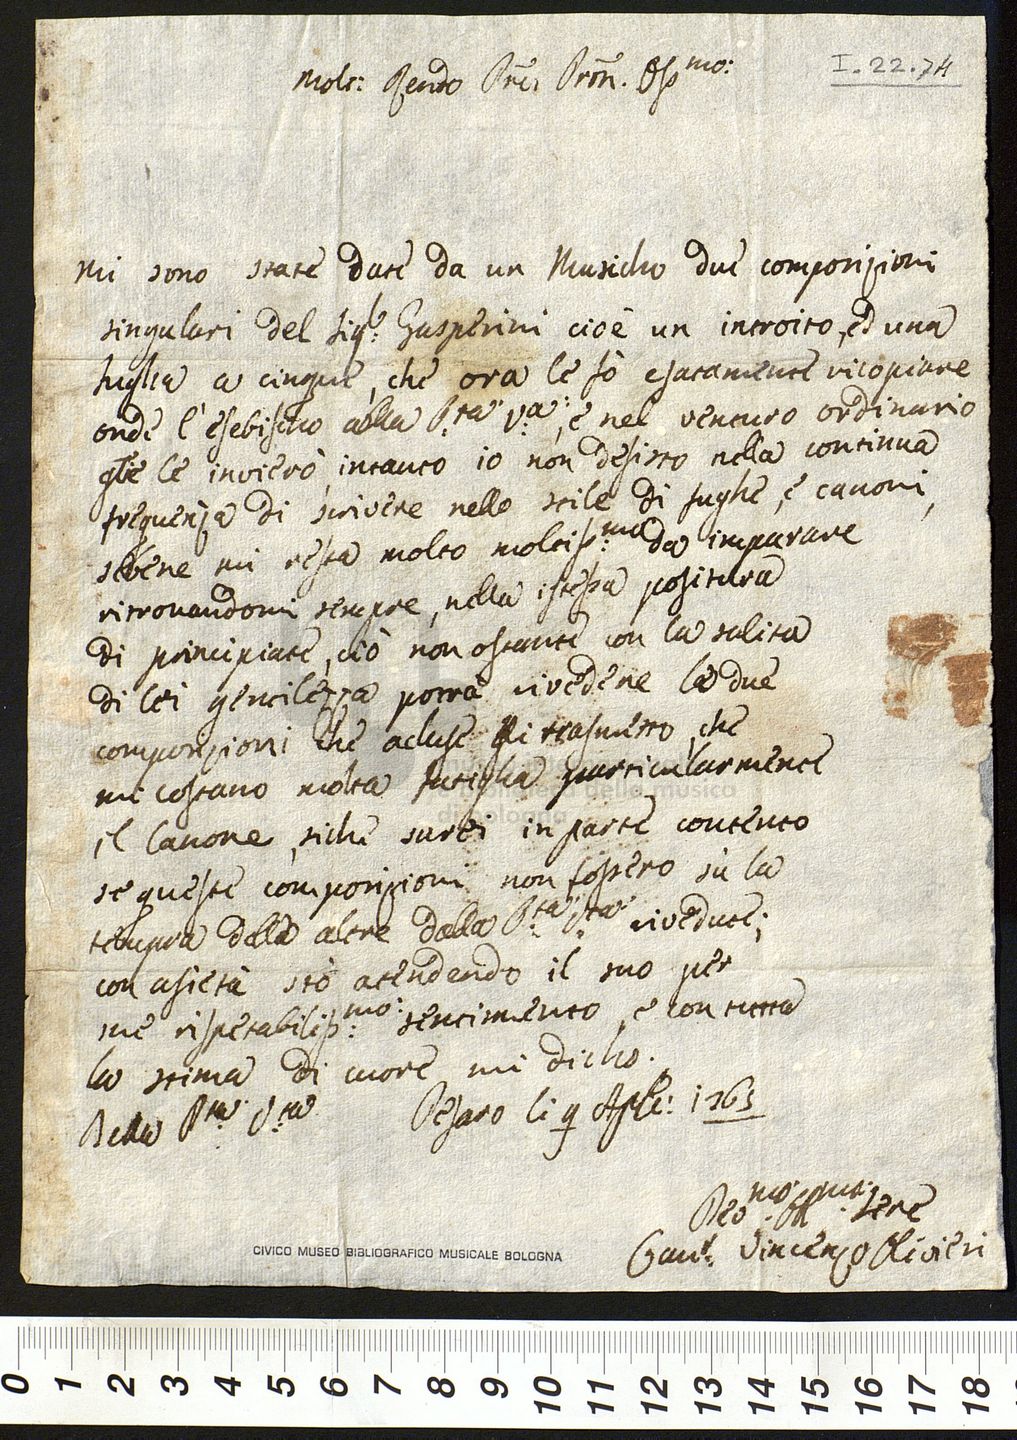 I.22.74
Molt: Rendo Prẽ, Prõn. Ossmo:
Mi sono state date da un Musicho due composizioni
singulari del Sigr: Gasperini cioè un introito, ed una
fugha a cinque, che ora le fò esatamente ricopiare
onde l'esebischo alla Ptà: Va:, e nel venturo ordinario
glie le invierò, intanto io non desisto nella continua
frequenza di scrivere nello stile di fughe, e canoni,
sebene mi resta molto moltissma: da imparare
ritrovandomi sempre, nella istessa positura
di principiate, ciò non ostante con la solita
di lei gentilezza potrà rivedere le due
composizioni che acluse li trasmetto, che
mi costano molta fatigha particularmente
il Canone, siche sarei in parte contento
se queste composizioni non fossero sù la
tempra delle altre dalla Ptà: Vra: rivedute;
con asietà stò atendendo il suo per
me rispetabilissmo: sentimento, e con tutta
la stima di cuore mi dicho.
Della Ptà: Vra Pesaro li 9 Aple: 1763
Devmo: Obmo: Sere
Gaur: Vincenzo Olivieri
CIVICO MUSEO BIBLIOGRAFICO MUSICALE BOLOGNA
0 1 2 3 4 5 6 7 8 9 10 11 12 13 14 15 16 17 18